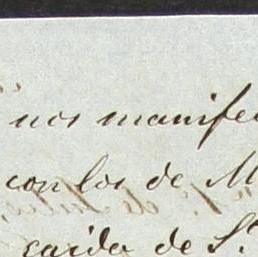 nos manifes
con los de M
caida de S.